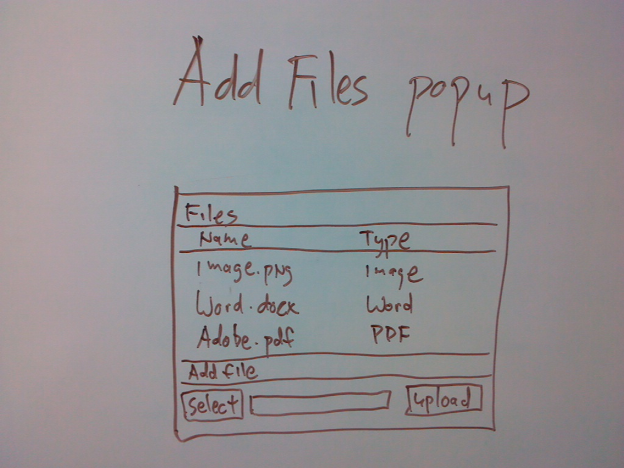 Add Files popup
Files
Name Type
Image.png Image
Word.docx Word
Adobe.pdf PDF
Add file
Select Upload